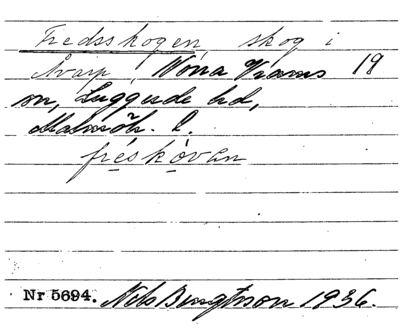 Fredsskogen, skog i
Åvarp, Norra Vrams 19
sn, Luggude hd,
Malmöh. l.
fréskòvan
Nr 5694. Nils Bengtsson 1936.